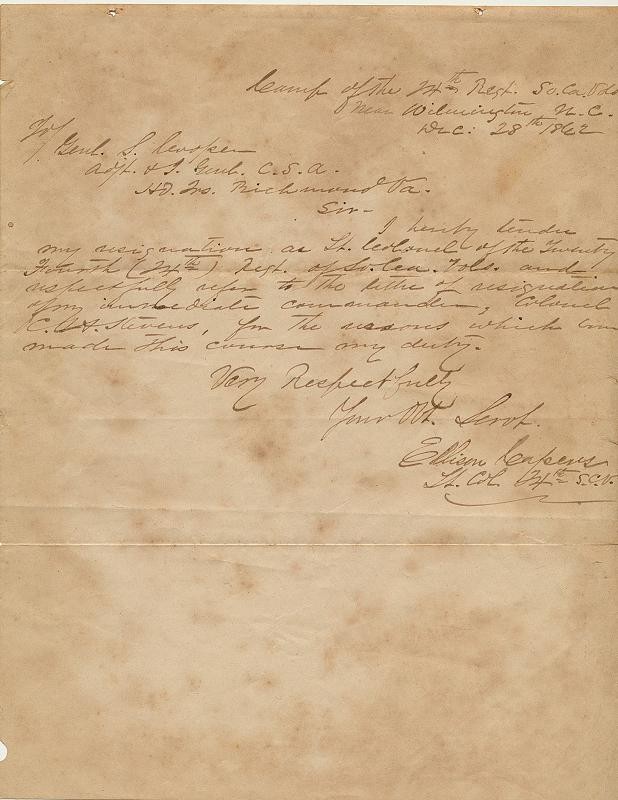 Camp of the 24th Regt. So. Ca. Vols
Near Wilmington N. C.
Dec: 28th 1862
To/
Genl. S. Cooper
Adjt. & I. Genl. C. S. A.
Hd. Qrs. Richmond Va.
Sir-
I hereby tender
my resignation as Lt. Colonel of the Twenty
Fourth (24th) Regt. of So. Ca. Vols. and
respectfully refer to the letter of resignation
of my immediate commander, Colonel
C. H. Stevens, for the reasons which
made this course my duty.
Very Respectfully
Your Obt. Servt.
Ellison Capers
Lt. Col. 24th S. C. V.